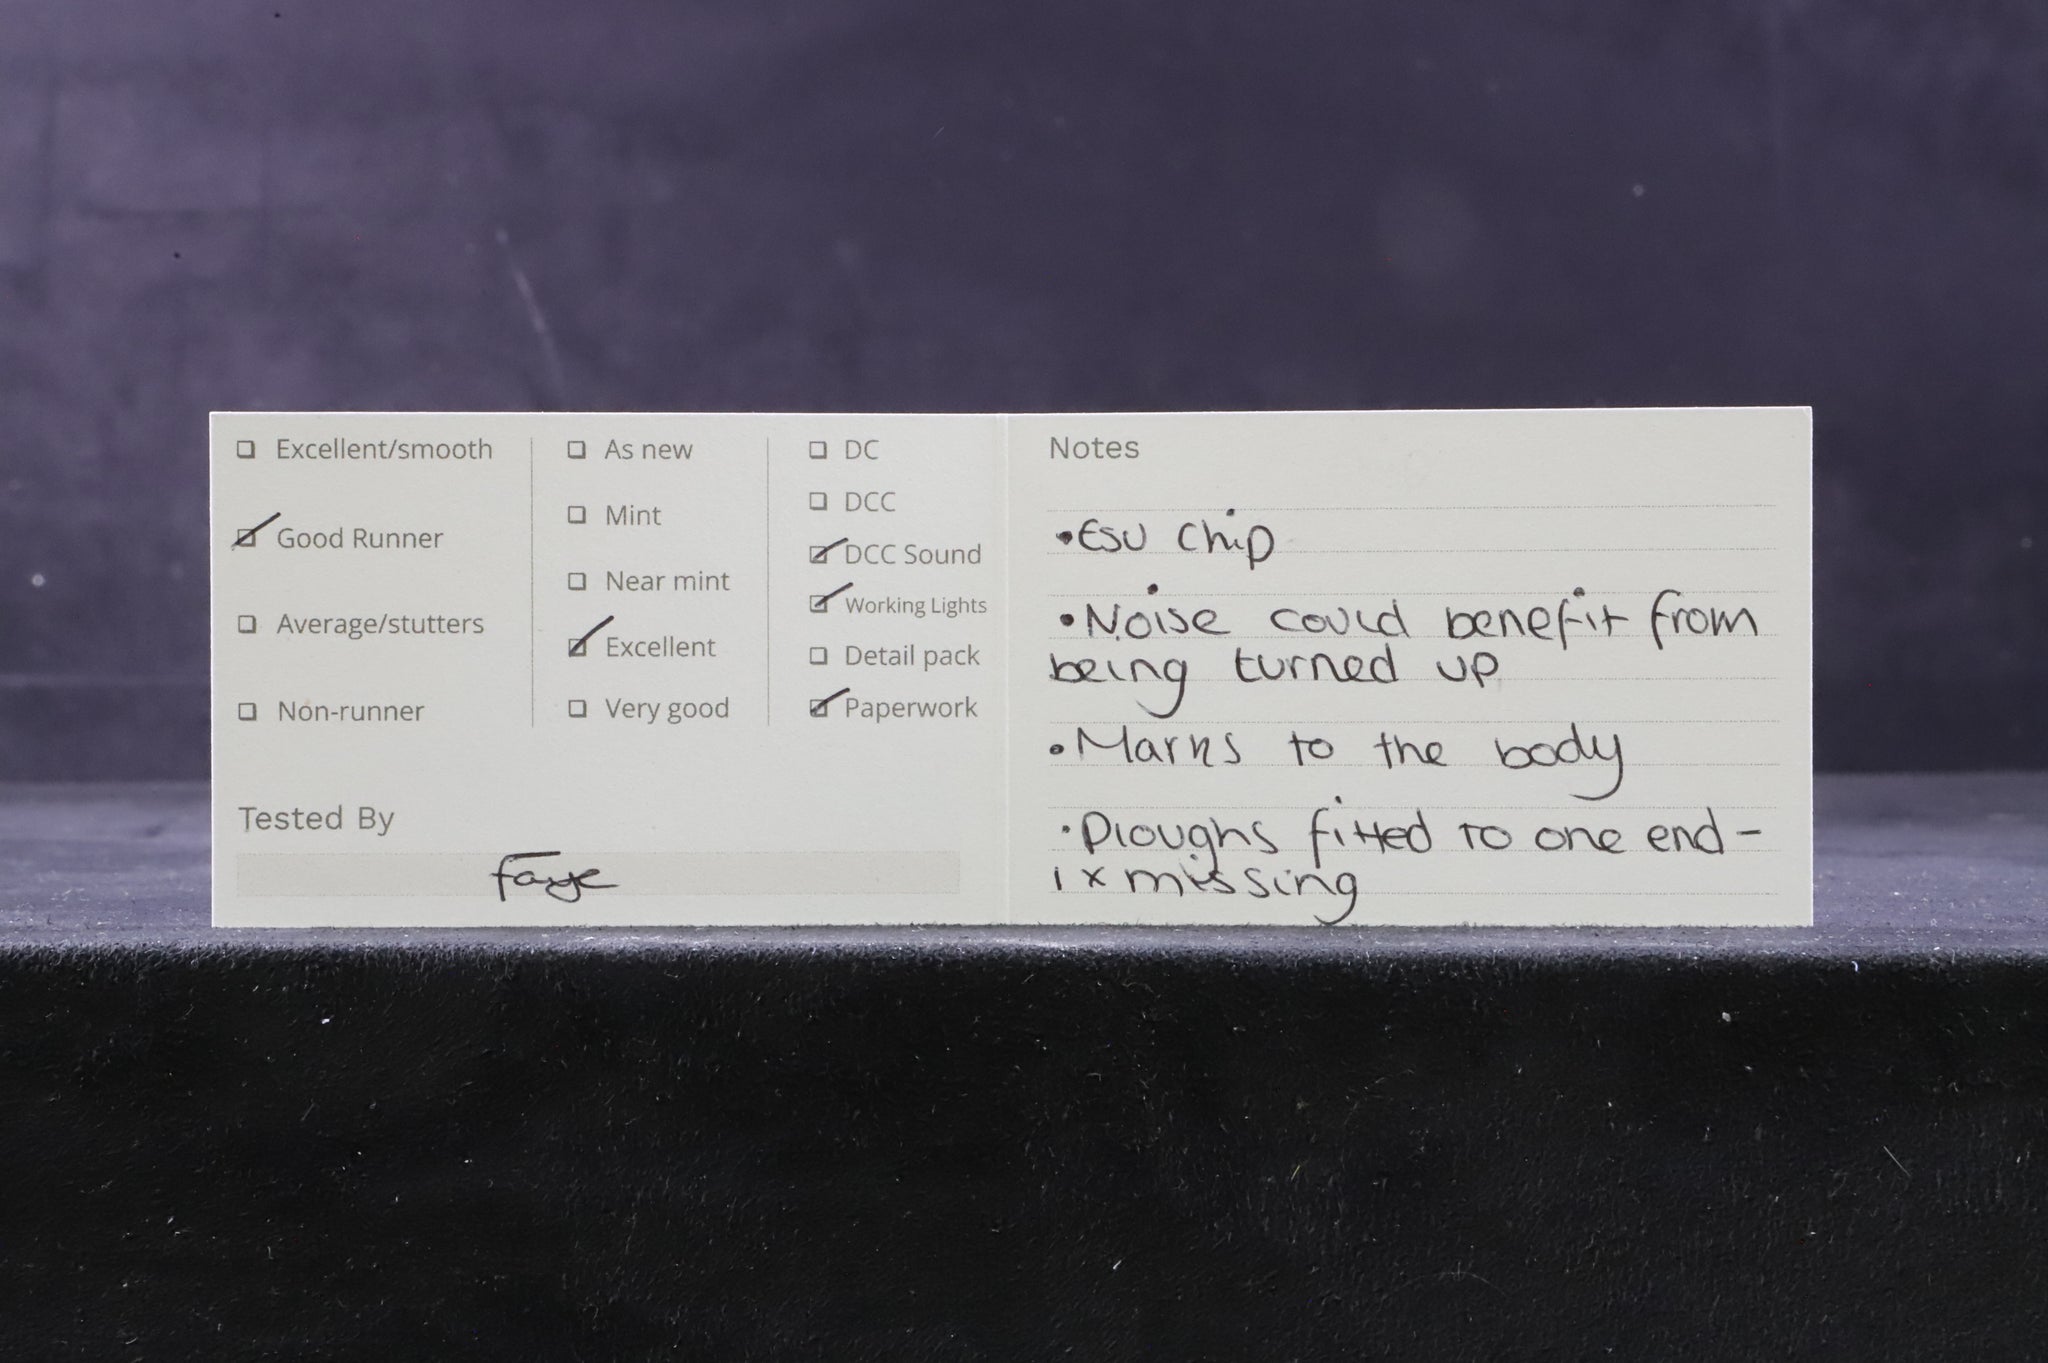 ☐ Excellent/smooth
☑ Good Runner
☐ Average/stutters
☐ Non-runner
☐ As new
☐ Mint
☐ Near mint
☑ Excellent
☐ Very good
☐ DC
☐ DCC
☑ DCC Sound
☑ Working Lights
☐ Detail pack
☑ Paperwork
Tested By
Faye
Notes
• ESU Chip
• Noise could benefit from
being turned up
• Marks to the body
• Ploughs fitted to one end -
1x missing